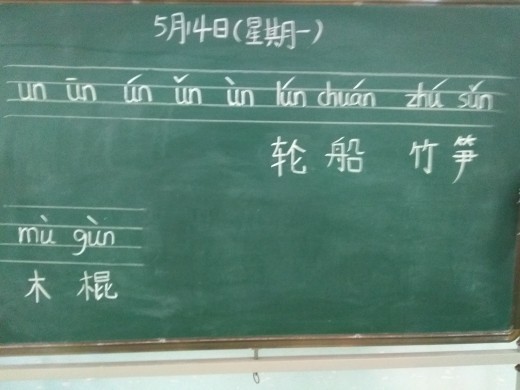 5月14日(星期一)
un ūn ún ǔn ùn lún chuán zhú sǔn
轮 船 竹 笋
mù gùn
木 棍